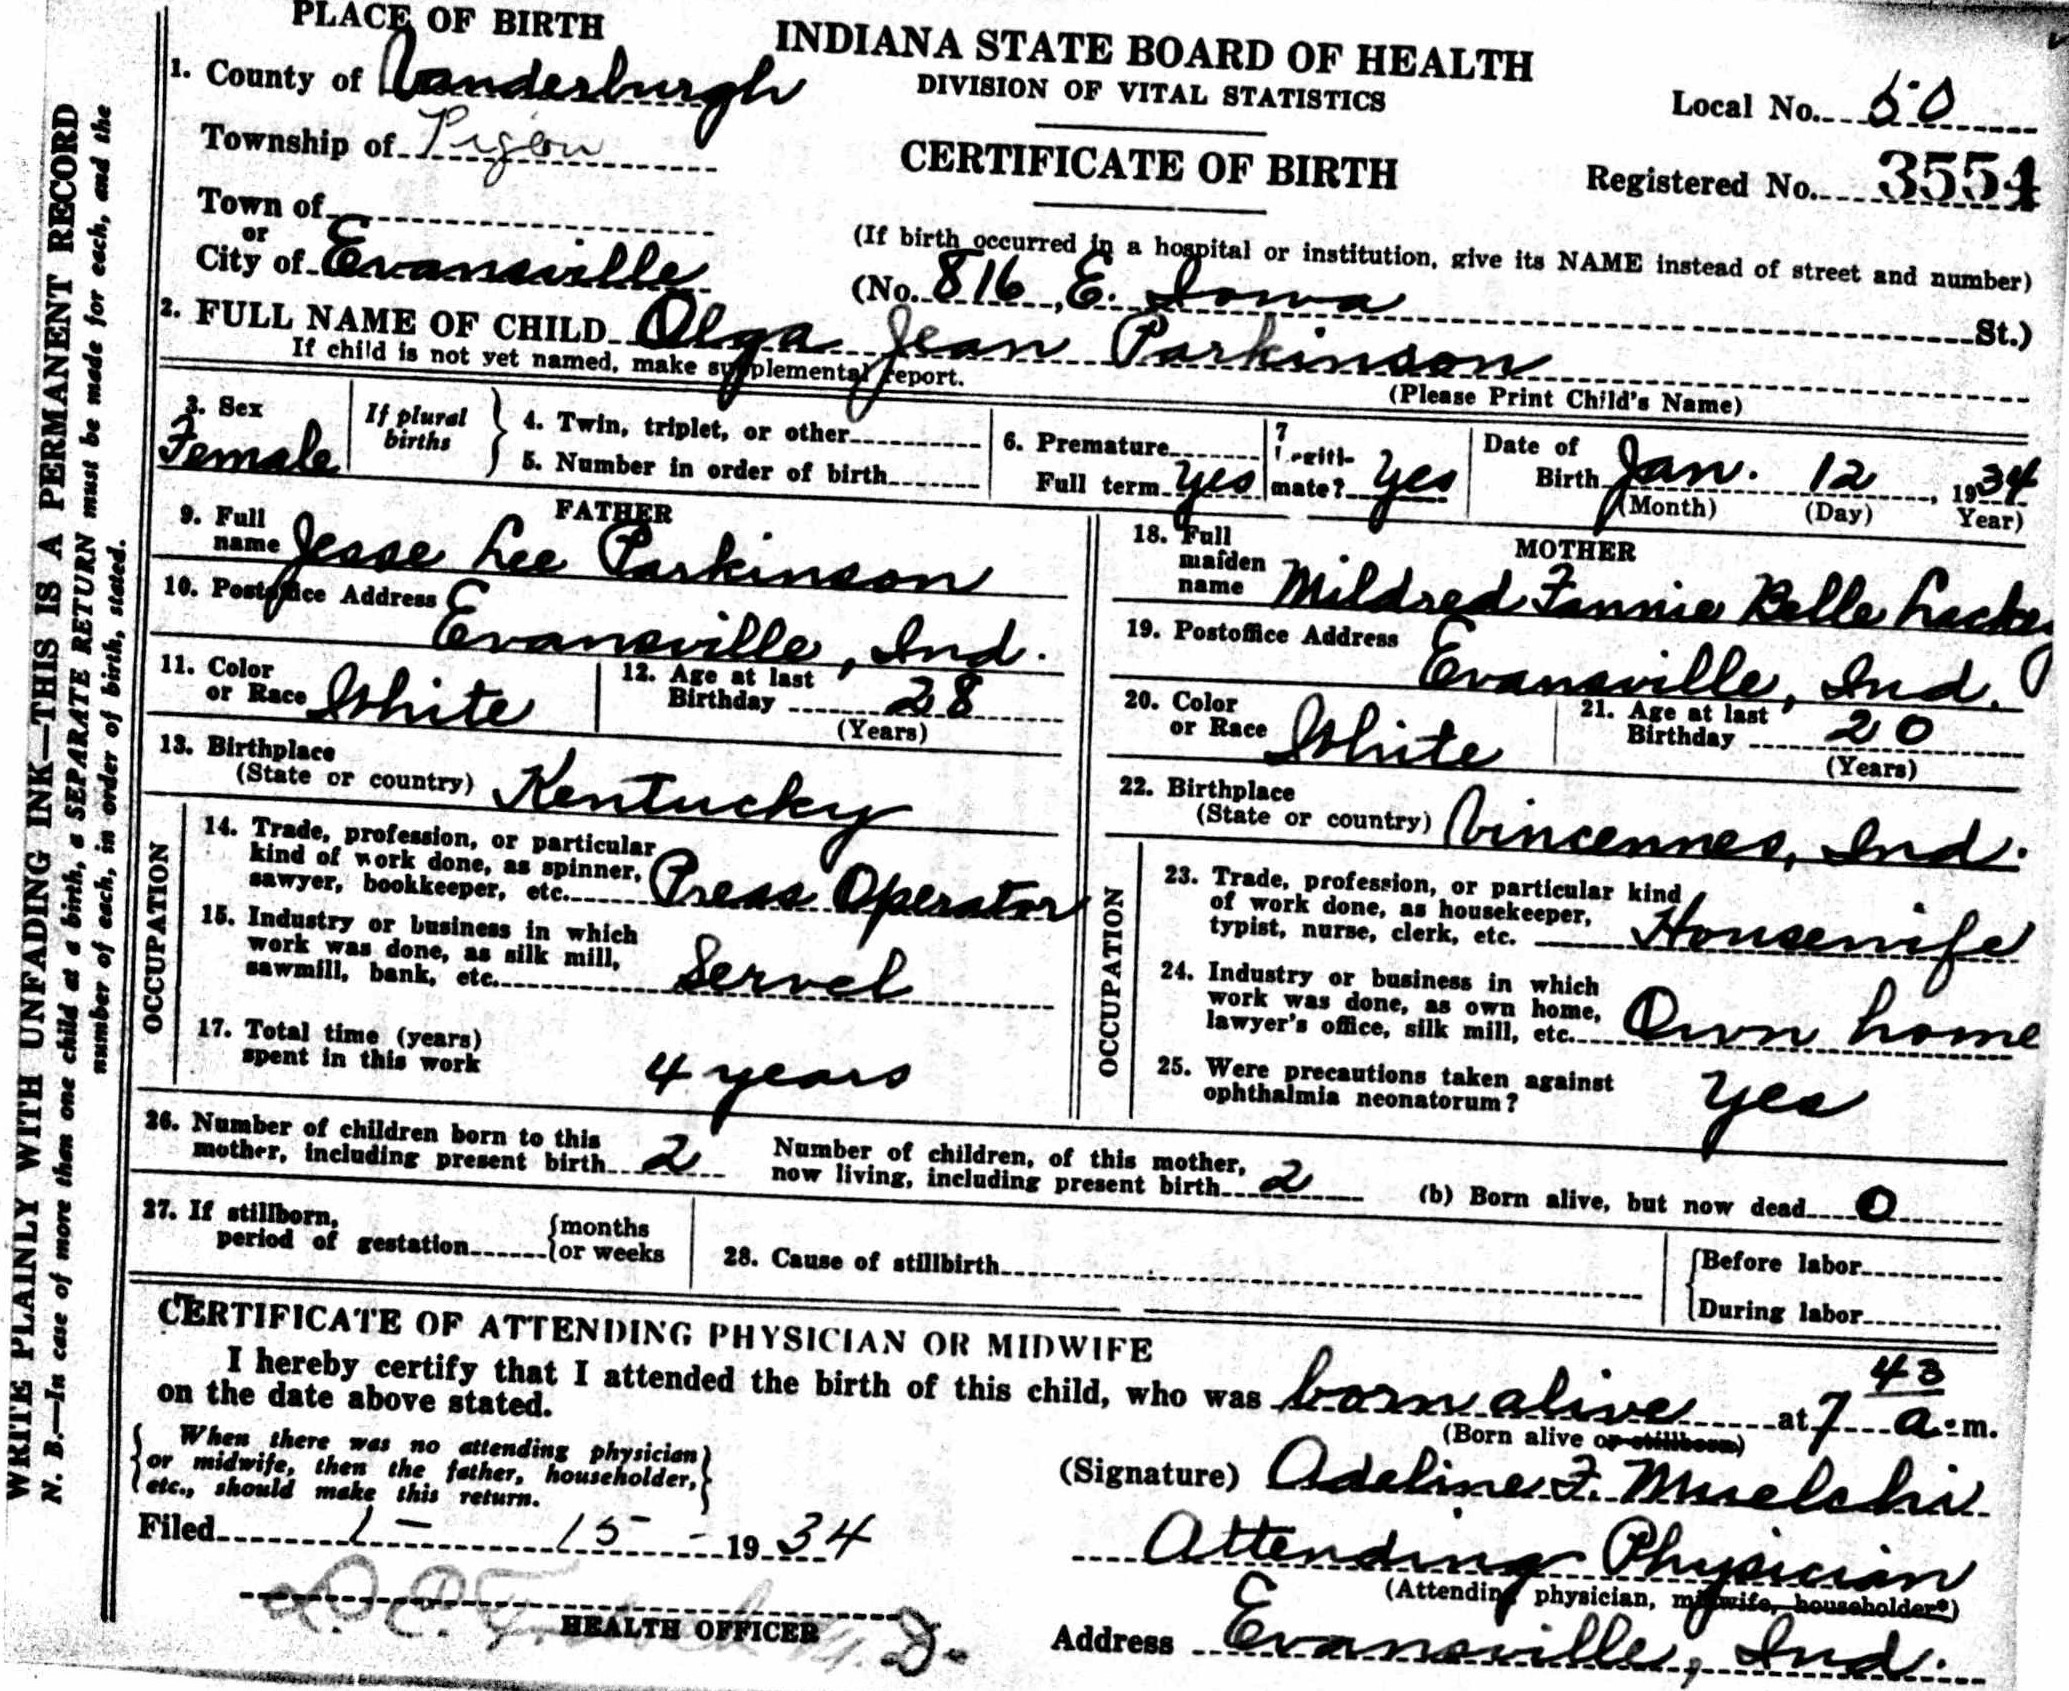 PLACE OF BIRTH
INDIANA STATE BOARD OF HEALTH
DIVISION OF VITAL STATISTICS
1. County of Vanderburgh
Local No. 50
Township of Pigeon
CERTIFICATE OF BIRTH
Registered No. 3554
Town of
or
City of Evansville
(If birth occurred in a hospital or institution, give its NAME instead of street and number)
(No. 816, E. Iowa St.)
2. FULL NAME OF CHILD Olga Jean Parkinson
If child is not yet named, make supplemental report.
(Please Print Child's Name)
3. Sex
Female
If plural
births
4. Twin, triplet, or other
5. Number in order of birth
6. Premature
Full term yes
7
Legiti-
mate? yes
Date of
Birth Jan. 12, 1934
(Month) (Day) Year)
FATHER
9. Full
name Jesse Lee Parkinson
10. Postoffice Address
Evansville, Ind.
11. Color
or Race White
12. Age at last
Birthday 28
(Years)
13. Birthplace
(State or country) Kentucky
OCCUPATION
14. Trade, profession, or particular
kind of work done, as spinner,
sawyer, bookkeeper, etc. Press Operator
15. Industry or business in which
work was done, as silk mill,
sawmill, bank, etc. Servel
17. Total time (years)
spent in this work 4 years
MOTHER
18. Full
maiden
name Mildred Fannie Belle Lackey
19. Postoffice Address
Evansville, Ind.
20. Color
or Race White
21. Age at last
Birthday 20
(Years)
22. Birthplace
(State or country) Vincennes, Ind.
OCCUPATION
23. Trade, profession, or particular kind
of work done, as housekeeper,
typist, nurse, clerk, etc. Housewife
24. Industry or business in which
work was done, as own home,
lawyer's office, silk mill, etc. Own home
25. Were precautions taken against
ophthalmia neonatorum? yes
26. Number of children born to this
mother, including present birth 2
Number of children, of this mother,
now living, including present birth 2
(b) Born alive, but now dead 0
27. If stillborn,
period of gestation
months
or weeks
28. Cause of stillbirth
Before labor
During labor
CERTIFICATE OF ATTENDING PHYSICIAN OR MIDWIFE
I hereby certify that I attended the birth of this child, who was born alive at 7 43 a. m.
on the date above stated.
(Born alive or stillborn)
When there was no attending physician
or midwife, then the father, householder,
etc., should make this return.
(Signature) Adeline F.
Filed 1 - 15 - 1934
Attending Physician
(Attending physician, midwife, householder*)
HEALTH OFFICER
Address Evansville, Ind.
WRITE PLAINLY WITH UNFADING INK—THIS IS A PERMANENT RECORD
N. B.—In case of more than one child at a birth, a SEPARATE RETURN must be made for each, and the
number of each, in order of birth, stated.